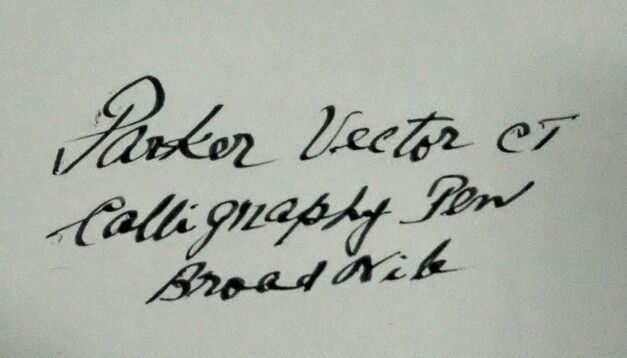 Parker Vector CT
Calligraphy Pen
Broad Nib